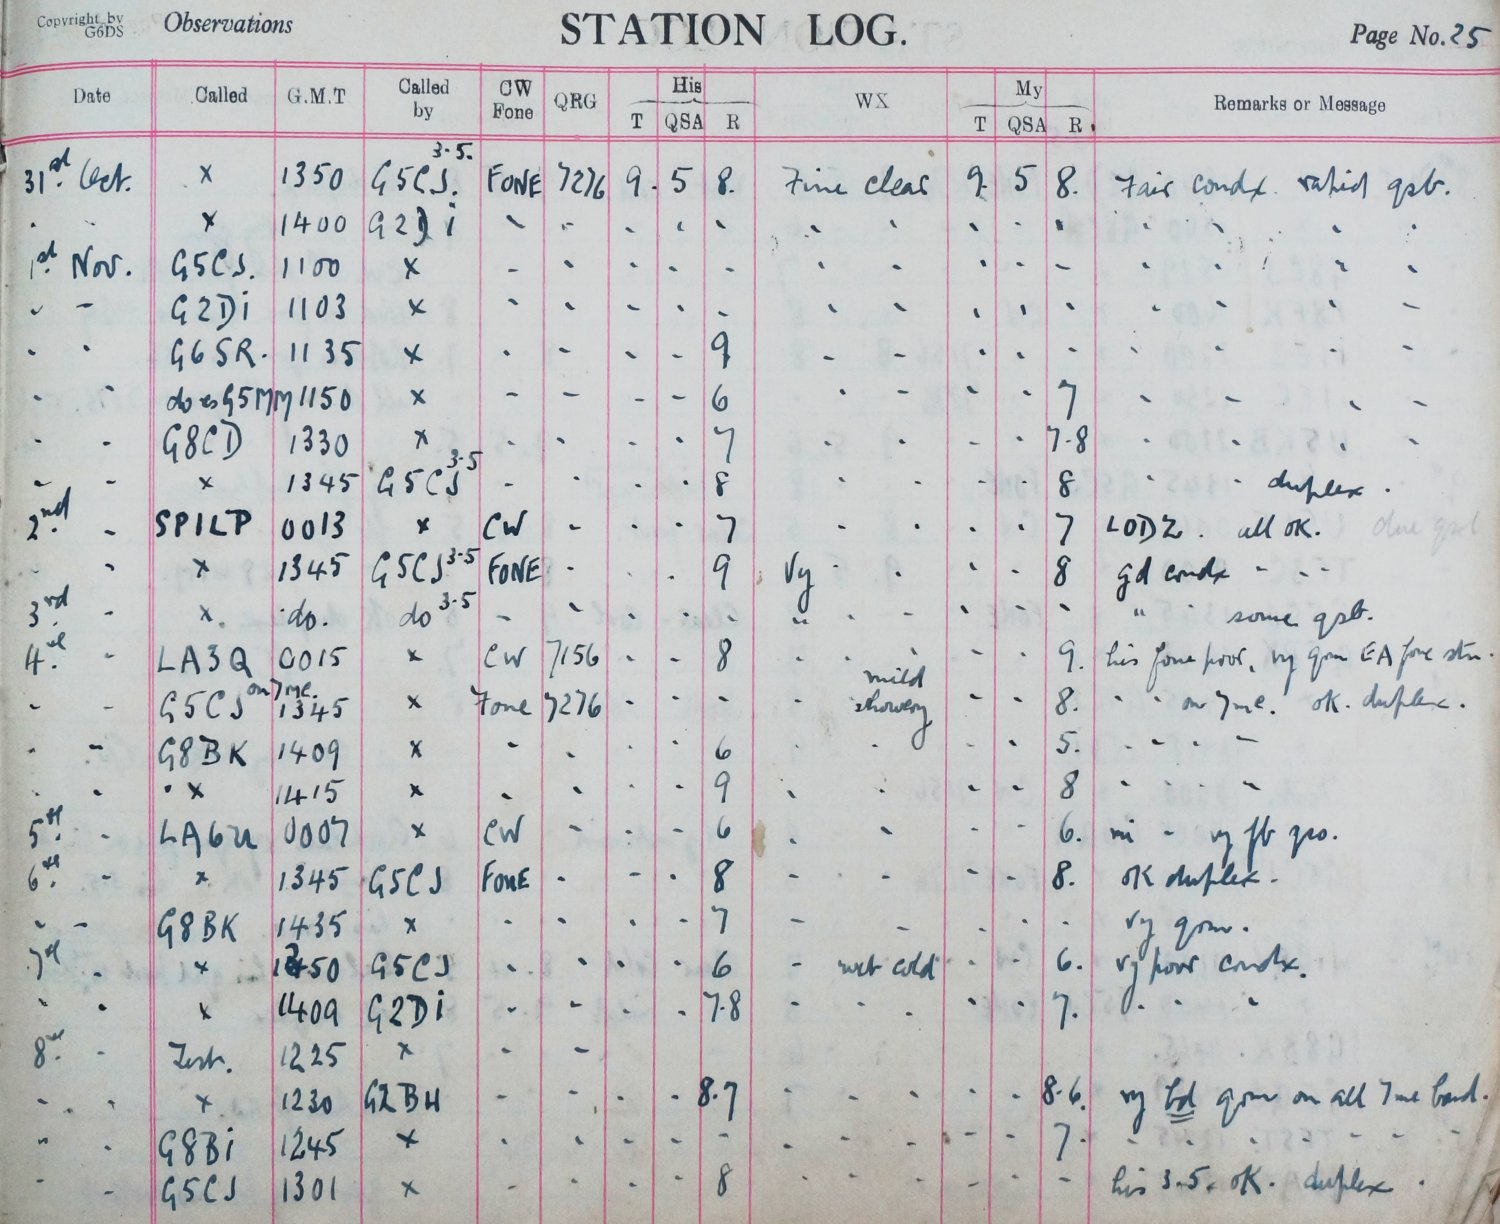 Copyright by G6DS Observations STATION LOG. Page No. 25
Date Called G.M.T Called by CW Fone QRG His T QSA R WX My T QSA R Remarks or Message
31st. Oct. x 1350 G5CJ. 3-5. FONE 7276 9. 5 8. Fine clear 9. 5 8. Fair condx. rapid qsb.
" " x 1400 G2Di " " " " " " " " " " " " "
1st Nov. G5CJ. 1100 x - " " " " " " " " - " " " "
" - G2Di 1103 x " " " " " " " " " " " " -
" " G6SR. 1135 x " " " " 9 " " " " " " " " "
" " do es G5MM 1150 x - - " - 6 " " " " 7 " " " "
" " G8CD 1330 x " " " " 7 " " " " 7-8 " " " "
" " x 1345 G5CJ 3-5 - " " " 8 " " " " 8 " " duplex.
2nd. " SP1LP 0013 x CW " " " 7 " " " " 7 LODZ. all OK.
" " x 1345 G5CJ 3-5 FONE " " " 9 Vy " " " 8 gd condx - - -
3rd " x do. do 3-5 " " " " " " " " " " " " some qsb.
4. " LA3Q 0015 x CW 7156 " " 8 " " " " 9. his fone poor, vy qrm EA fone stn.
" - G5CJ on 7mc. 1345 x Fone 7276 " " " " mild showery " " 8. " " on 7mc. ok. duplex.
" " G8BK 1409 x " " " " 6 " " " " 5. " " " "
" " " x 1415 x " " " " 9 " " " " 8 " " " "
5th. " LA6U 0007 x CW " " " 6 " " " " 6. ni - vy fb qso.
6. " x 1345 G5CJ FONE " " " 8 " " " " 8. OK duplex.
" - G8BK 1435 x " " " " 7 - " " " " vy qrm.
7 " x 1350 G5CJ " " " " 6 " wet cold " " 6. vy poor condx.
" " x 1409 G2Di " " " " 7-8 " " " " 7. " " "
8. " Test. 1225 x " -
" " x 1230 G2BH " " " " 8-7 " " " " 8-6. vy bd qrm on all 7mc band.
" " G8Bi 1245 x " " " " " " " " " 7. " " " " "
" " G5CJ 1301 x " " " " 8 " " " " " his 3-5. OK. duplex.